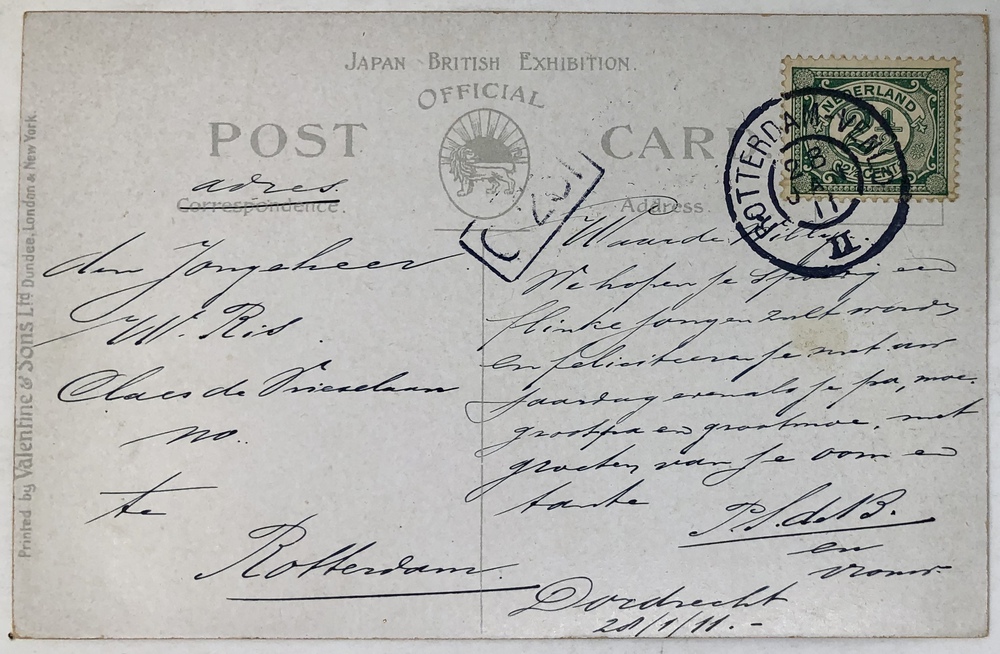 JAPAN BRITISH EXHIBITION.
OFFICIAL
POST CARD
NEDERLAND
2½
2½ CENT
ROTTERDAM
28 JA 11
II
adres.
Correspondence.
Address.
den Jongeheer
W. Ris
Claes de Vrieselaan
no.
te
Rotterdam.
Waarde
We hopen je spoedig een
flinke jongen zult worden
en feliciteeren je met uw
jaardag evenals je pa, moe.
grootpa en grootmoe, met
groeten van je oom en
tante
P.S. de B.
en
vrouw.
Dordrecht
28/1/11.-
Printed by Valentine & Sons Ltd Dundee, London & New York.